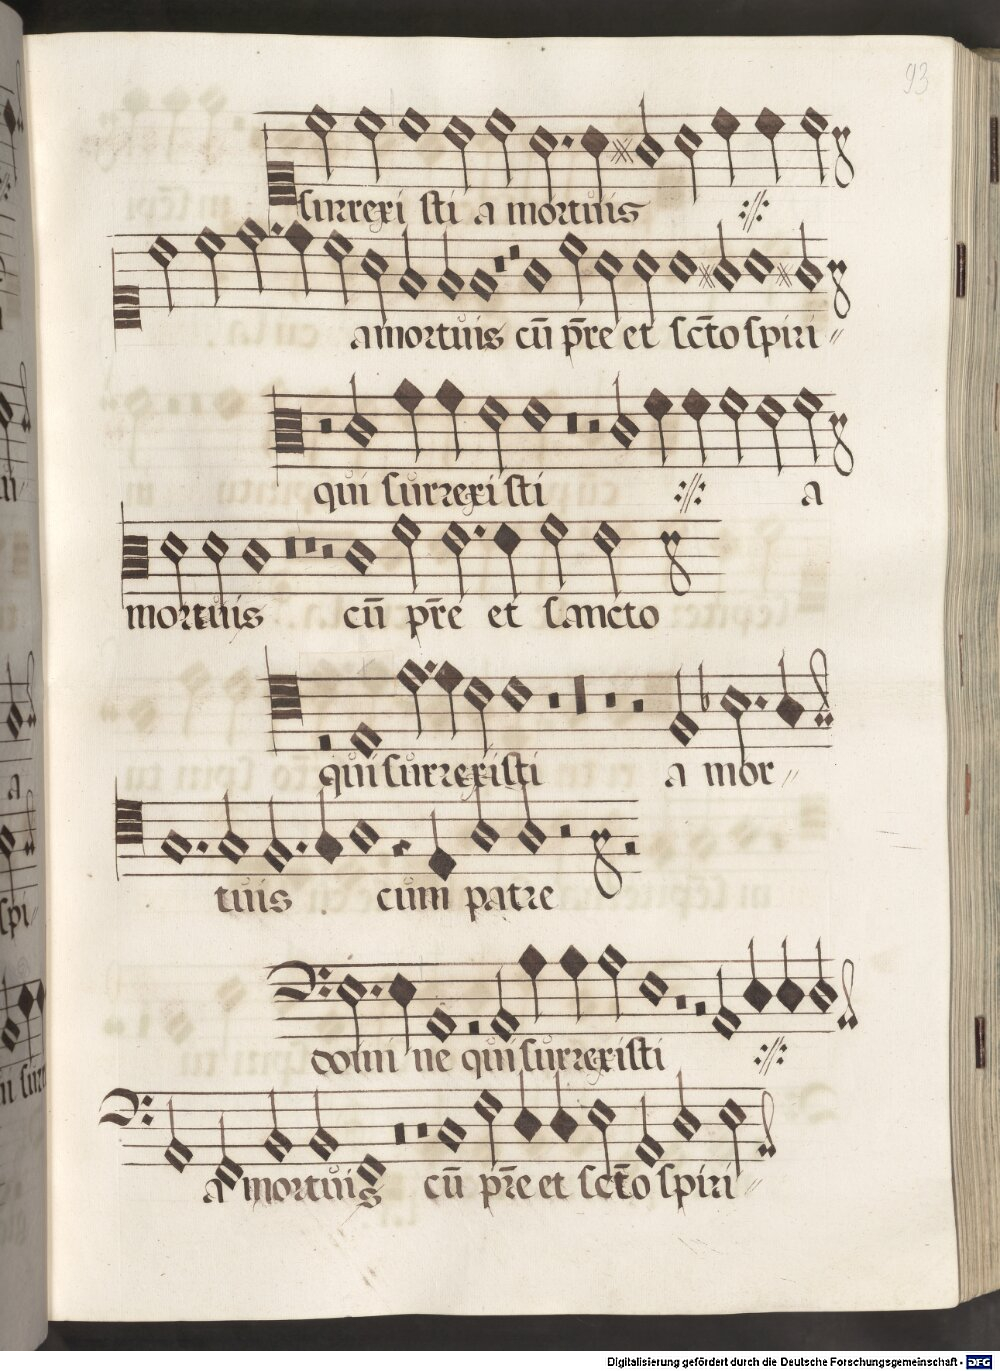 93
surrexi sti a mortuis
a mortuis cū p̄re et sc̄to spiri
qui surrexi sti a
mortuis cū pr̄e et sancto
qui surrexisti a mor
tuis cum patre
domi ne qui surrexisti
a mortuis cū pr̄e et sct̄o spiri
Digitalisierung gefördert durch die Deutsche Forschungsgemeinschaft - DFG